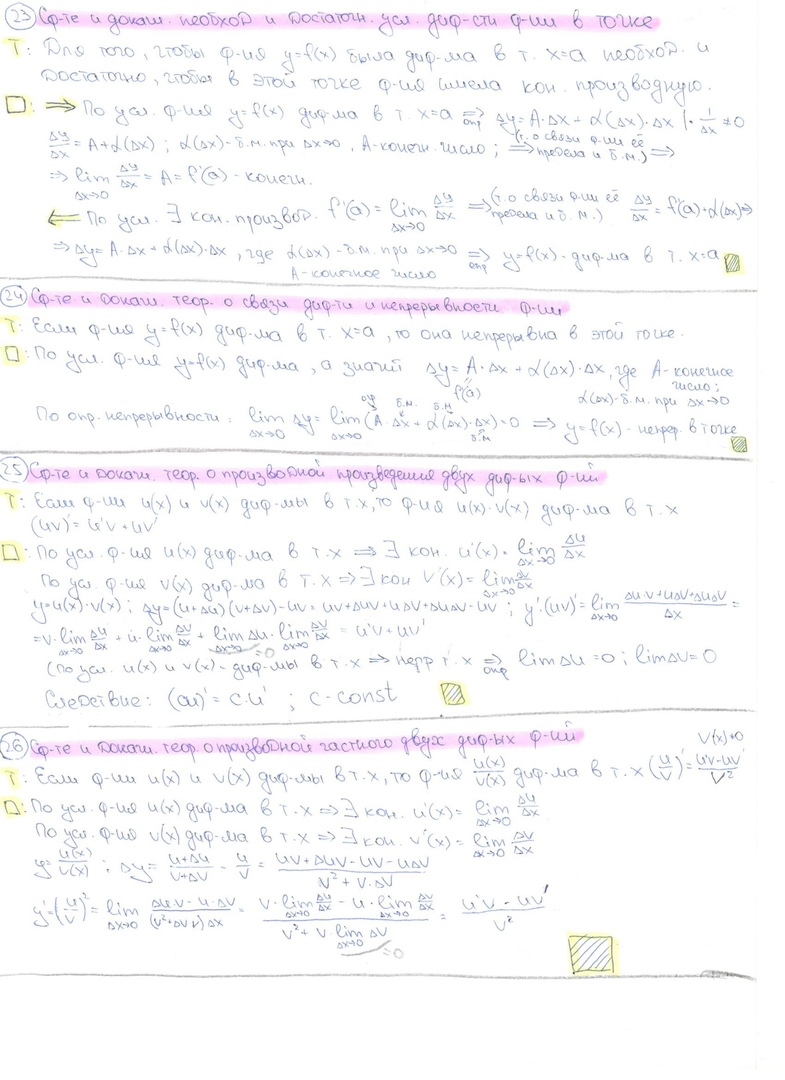 23 Сф-те и докаж. необход и Достаточн. усл. диф-сти ф-ии в точке
Т: Для того, чтобы ф-ия y=f(x) была диф-ма в т. x=a необход. и
Достаточно, чтобы в этой точке ф-ия имела кон. производную.
□: ⇒ По усл. ф-ия y=f(x) диф-ма в т. x=a ⇒опр Δy=A·Δx+α(Δx)·Δx |·1/Δx ≠0
Δy/Δx = A+α(Δx) ; α(Δx)-б.м. при Δx→0, A-конечн. число ; ⇒(т. о связи ф-ии её предела и б.м.) ⇒
⇒ lim Δx→0 Δy/Δx = A = f'(a) - конечн.
⇐ По усл. ∃ кон. производ. f'(a) = lim Δx→0 Δy/Δx ⇒(т. о связи ф-ии её предела и б.м.) Δy/Δx = f'(a)+α(Δx) ⇒
⇒ Δy = A·Δx + α(Δx)·Δx, где α(Δx)-б.м. при Δx→0 ⇒опр y=f(x)-диф-ма в т. x=a
A-конечное число
24 Сф-те и Докаж. теор. о связи диф-ти и непрерывности ф-ии
Т: Если ф-ия y=f(x) диф-ма в т. x=a, то она непрерывна в этой точке.
□: По усл. ф-ия y=f(x) диф-ма, а значит Δy = A·Δx + α(Δx)·Δx, где A-конечное число;
f'(a) α(Δx)-б.м. при Δx→0
По опр. непрерывности: lim Δx→0 Δy = lim Δx→0 (A·Δx + α(Δx)·Δx) = 0 ⇒ y=f(x)-непрер. в точке
25 Сф-те и Докаж. теор. о производной произведения двух диф-ых ф-ий
Т: Если ф-ии u(x) и v(x) диф-мы в т. x, то ф-ия u(x)·v(x) диф-ма в т. x
(uv)' = u'v + uv'
□: По усл. ф-ия u(x) диф-ма в т. x ⇒ ∃ кон. u'(x) = lim Δx→0 Δu/Δx
По усл. ф-ия v(x) диф-ма в т. x ⇒ ∃ кон v'(x) = lim Δx→0 Δv/Δx
y=u(x)·v(x) ; Δy = (u+Δu)(v+Δv)-uv = uv+Δuv+uΔv+ΔuΔv-uv ; y'=(uv)' = lim Δx→0 (Δu·v+uΔv+ΔuΔv)/Δx =
= v·lim Δx→0 Δu/Δx + u·lim Δx→0 Δv/Δx + lim Δx→0 Δu · lim Δx→0 Δv/Δx = u'v + uv'
=0
(По усл. u(x) и v(x) - диф-мы в т. x ⇒ непр т. x ⇒опр lim Δu = 0 ; lim Δv = 0
Следствие: (cu)' = c·u' ; c-const
26 Сф-те и Докаж. теор. о производной частного двух диф-ых ф-ий
v(x)≠0
Т: Если ф-ии u(x) и v(x) диф-мы в т. x, то ф-ия u(x)/v(x) диф-ма в т. x (u/v)' = (u'v-uv')/v²
□: По усл. ф-ия u(x) диф-ма в т. x ⇒ ∃ кон. u'(x) = lim Δx→0 Δu/Δx
По усл. ф-ия v(x) диф-ма в т. x ⇒ ∃ кон. v'(x) = lim Δx→0 Δv/Δx
y=u(x)/v(x) ; Δy = (u+Δu)/(v+Δv) - u/v = (uv+Δuv-uv-uΔv)/(v²+v·Δv)
y'=(u/v)' = lim Δx→0 (Δu·v-u·Δv)/((v²+Δv v)Δx) = (v·lim Δx→0 Δu/Δx - u·lim Δx→0 Δv/Δx)/(v²+v·lim Δx→0 Δv) = (u'v-uv')/v²
=0